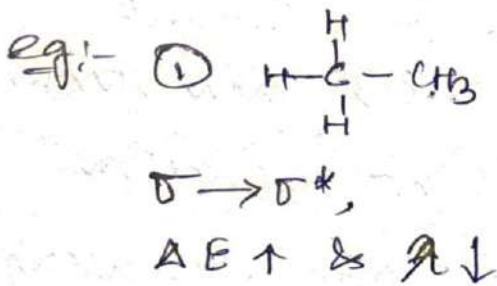 eg:- ① H
H-C-CH3
H
σ → σ*,
ΔE ↑ & λ ↓